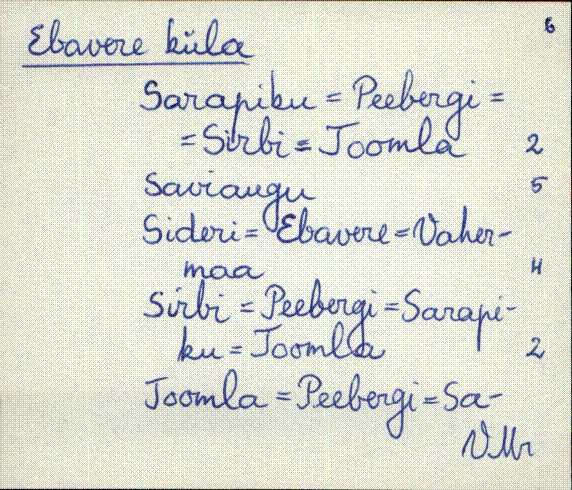 6
Ebavere küla
Sarapiku = Peebergi =
= Sirbi = Joomla 2
Saviaugu 5
Sideri = Ebavere = Vaher-
maa 4
Sirbi = Peebergi = Sarapi-
ku = Joomla 2
Joomla = Peebergi = Sa-
VMr